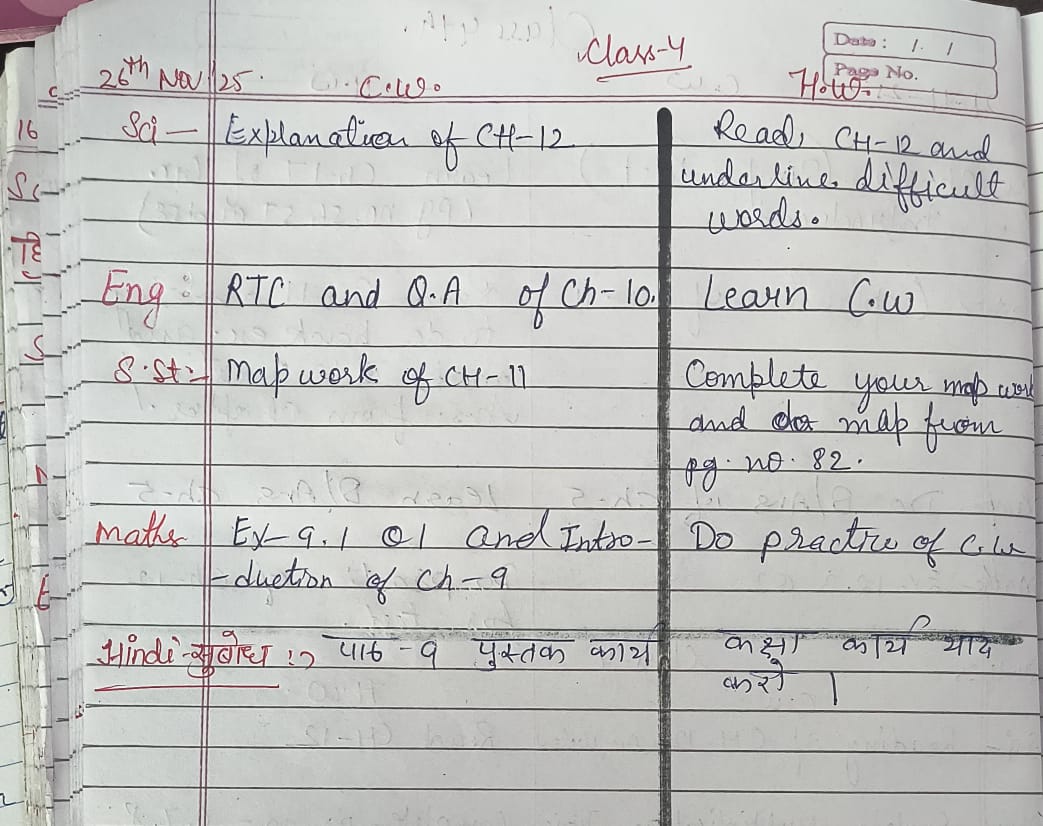 Class-4
Date: 1. 1
Page No.
26th Nov 25. C.W. H.W.
Sci — Explanation of CH-12 Read, CH-12 and
underline difficult
words.
Eng: RTC and Q.A of Ch-10. Learn C.W
S.St:- Map work of CH-11 Complete your map work
and do map from
pg. no. 82.
Maths Ex-9.1 Q1 and Intro- Do practice of C.W
-duction of Ch-9
Hindi- पाठ -9 पुस्तक कार्य कक्षा कार्य याद
करो ।
16
Sc
TE
S
E